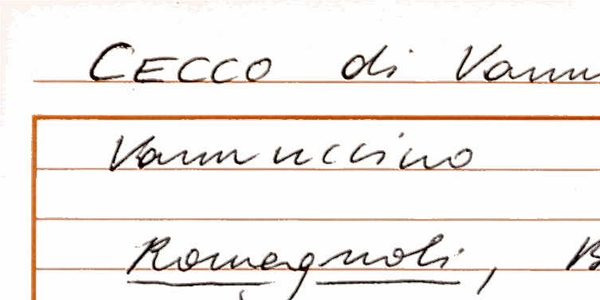 CECCO di Vann
Vannuccino
Romagnoli, B